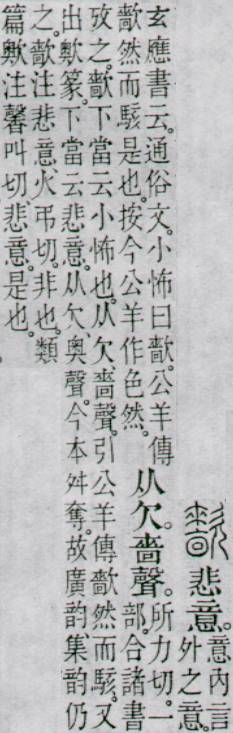 悲意。
意內言
外之意。
玄應書云。通俗文。小怖曰㱇。公羊傳
㱇然而駭是也。按今公羊作色然。
从欠。嗇聲。
所力切。一
部。合諸書
攷之。㱇下當云小怖也。从欠、嗇聲。引公羊傳㱇然而駭。又
出篆。下當云悲意。从欠、奧聲。今本舛奪。故廣韵、集韵仍
之。㱇注悲意、火弔切。非也。類
篇注馨叫切悲意。是也。